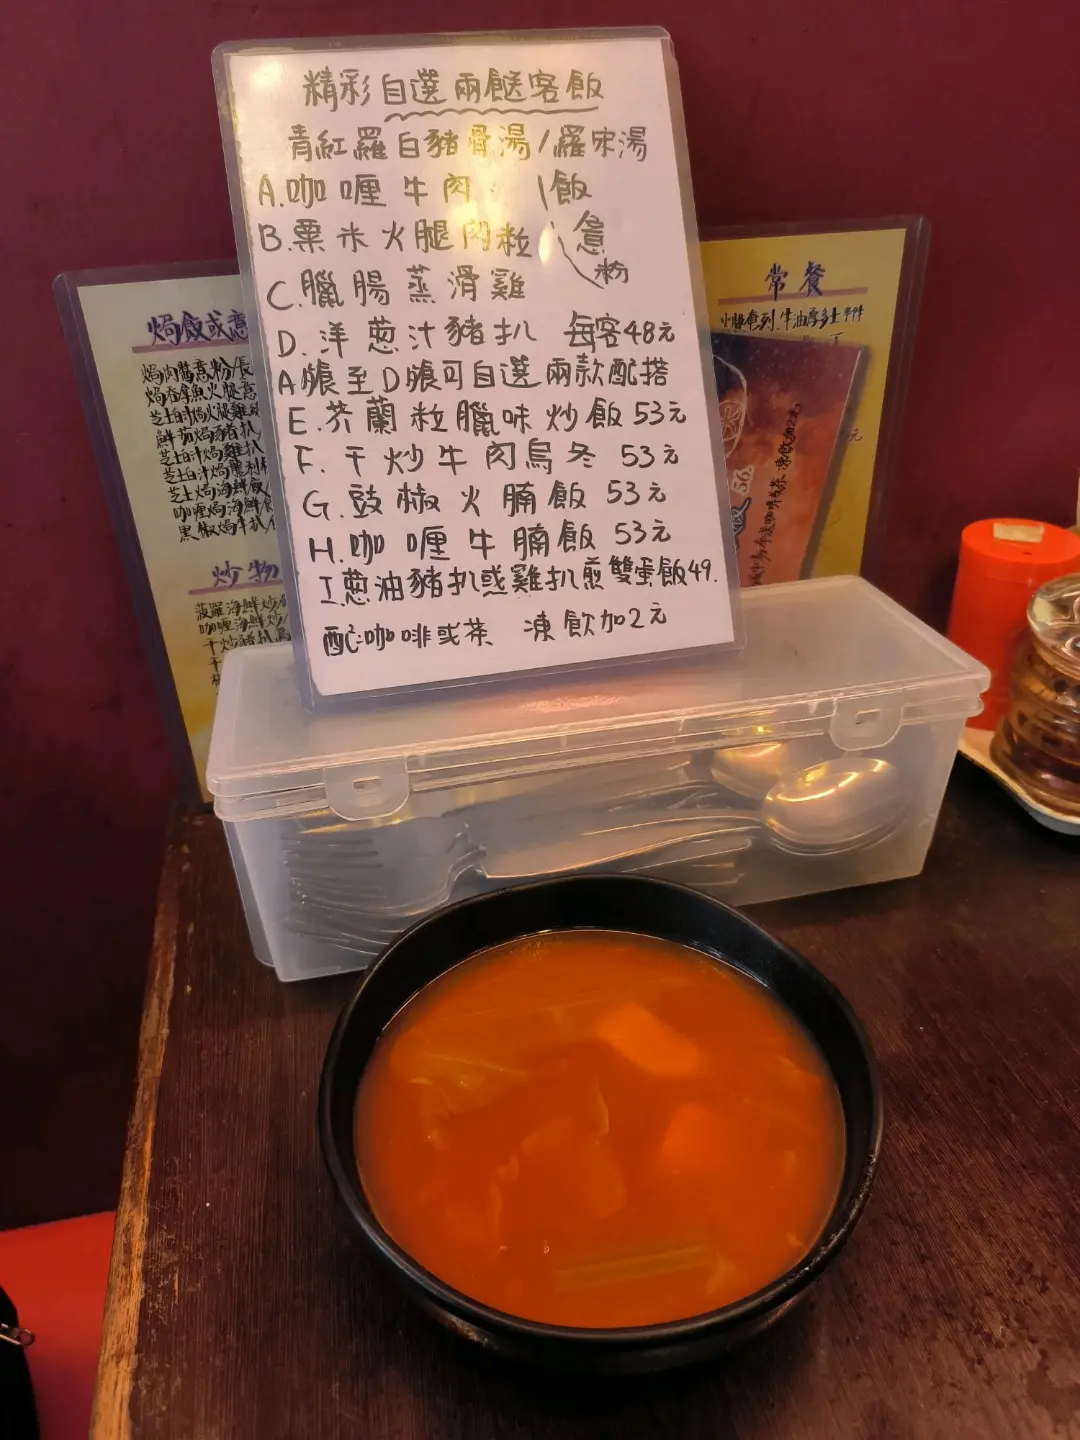 精彩自選兩餸客飯
青紅羅白豬骨湯/羅宋湯
A.咖喱牛肉
B.粟米火腿肉粒
C.臘腸蒸滑雞
D.洋葱汁豬扒 每客48元
飯
意粉
A餐至D餐可自選兩款配搭
E.芥蘭粒臘味炒飯53元
F.干炒牛肉烏冬 53元
G.豉椒火腩飯 53元
H.咖喱牛腩飯 53元
I.葱油豬扒或雞扒煎雙蛋飯49.
配:咖啡或茶 凍飲加2元
焗飯或意
焗肉醬意粉/長
焗吞拿魚火腿意
芝士白汁焗火腿雞
鮮茄焗豬扒
芝士白汁焗雞扒
芝士白汁焗
芝士焗海鮮飯/
咖喱焗海鮮
黑椒焗牛扒/
炒物
菠蘿海鮮炒
咖喱海鮮炒/
干炒豬扒
常餐
牛油厚多士
56.
凍飲加2元